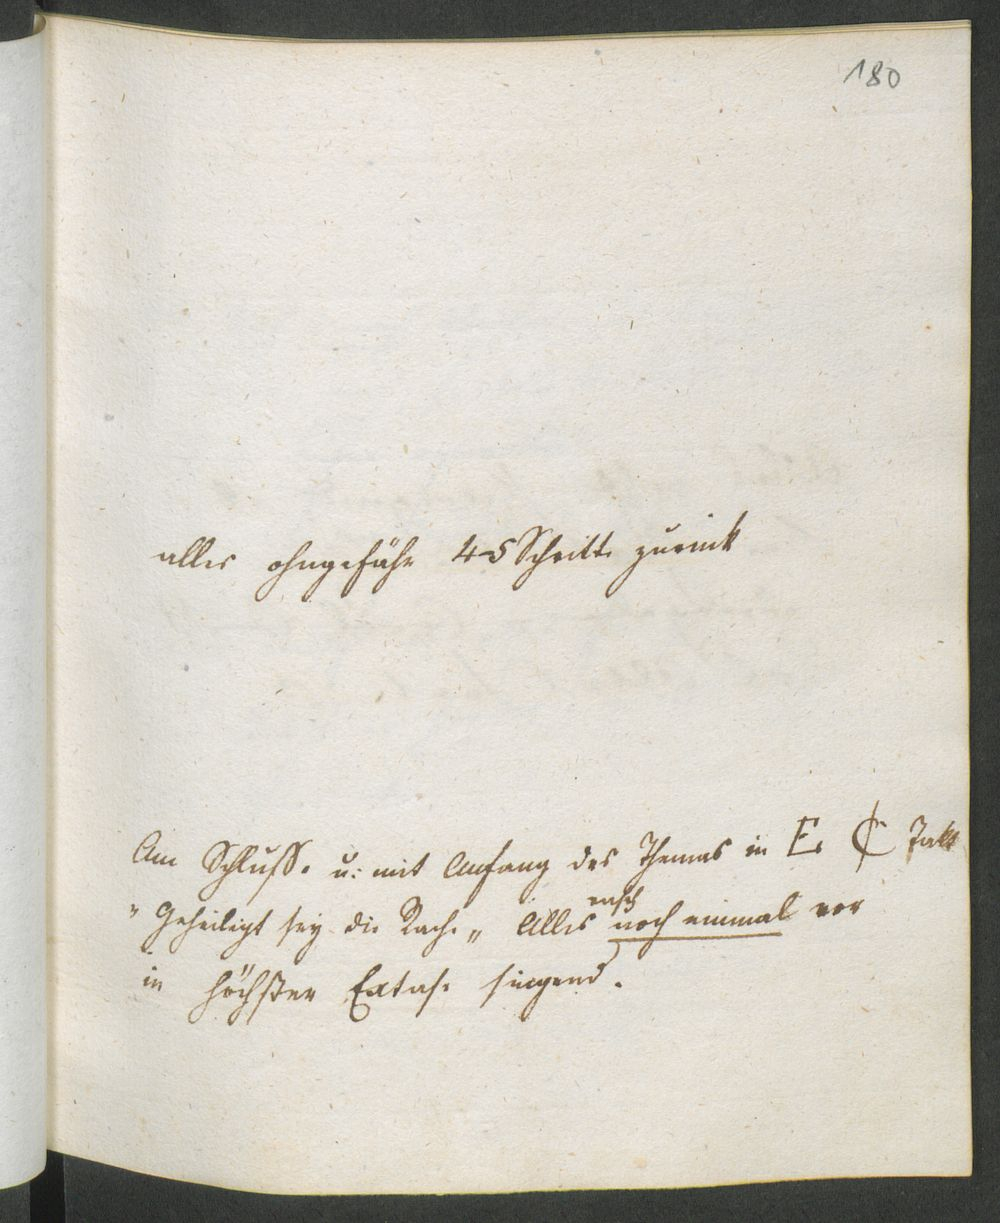 180
alles ohngefähr 4-5 Schritte zurück
Am Schlusse u: mit Anfang des Themas in E. ₵ Takt
rasch
"Geheiligt sey die Rache„ Alles noch einmal vor
in höchster Extase singend.